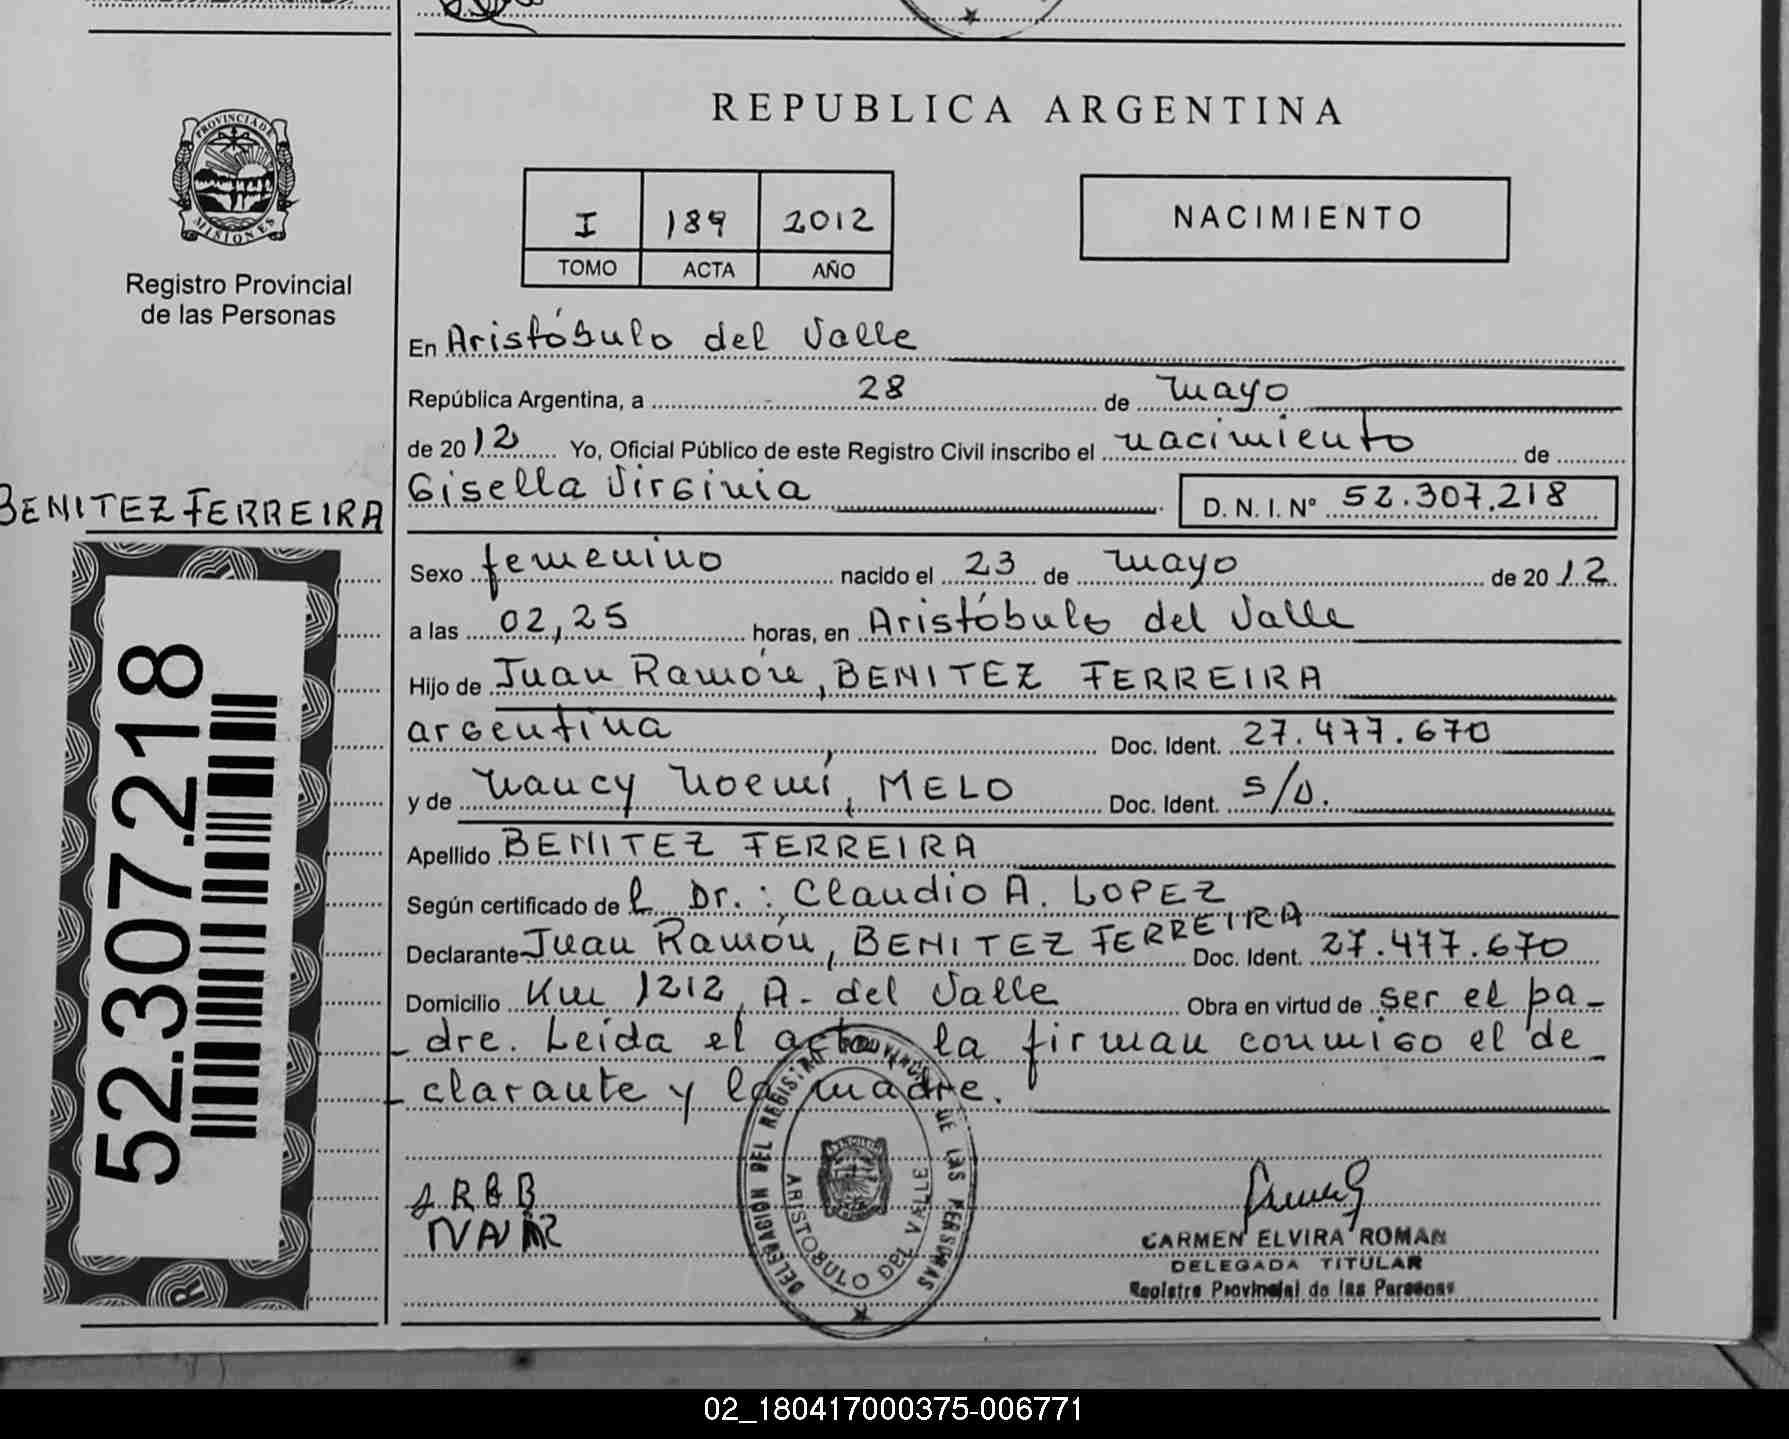 PROVINCIA DE
MISIONES
Registro Provincial
de las Personas
BENITEZ FERREIRA
52.307.218
REPUBLICA ARGENTINA
I 189 2012
TOMO ACTA AÑO
NACIMIENTO
En Aristóbulo del Valle
República Argentina, a 28 de mayo
de 2012 Yo, Oficial Público de este Registro Civil inscribo el nacimiento de
Gisella Virginia D. N. I. Nº 52.307.218
Sexo femenino nacido el 23 de mayo de 2012
a las 02,25 horas, en Aristóbulo del Valle
Hijo de Juan Ramón, BENITEZ FERREIRA
argentina, Doc. Ident. 27.477.670
y de Nancy Noemí, MELO Doc. Ident. S/D.
Apellido BENITEZ FERREIRA
Según certificado del Dr.: Claudio A. LOPEZ
Declarante Juan Ramón, BENITEZ FERREIRA Doc. Ident. 27.477.670
Domicilio Km 1212, A. del Valle Obra en virtud de ser el pa-
-dre. Leída el acta, la firman conmigo el de_
-clarante y la madre.
DELEGACION DEL REGISTRO PROVINCIAL DE LAS PERSONAS
ARISTOBULO DEL VALLE
CARMEN ELVIRA ROMAN
DELEGADA TITULAR
Registro Provincial de las Personas
02_180417000375-006771